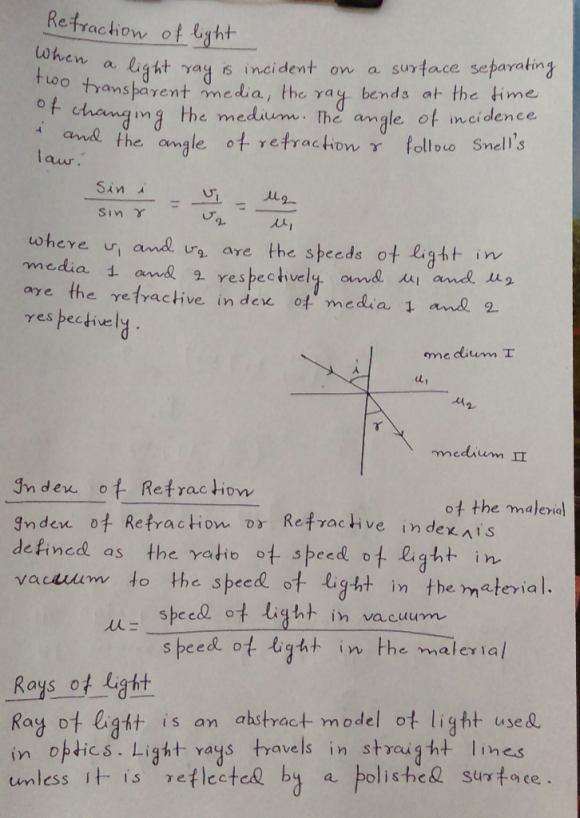 Refraction of light
When a light ray is incident on a surface separating
two transparent media, the ray bends at the time
of changing the medium. The angle of incidence
i and the angle of refraction r follow Snell's
law:
Sin i / sin r = v₁ / v₂ = μ₂ / μ₁
where v₁ and v₂ are the speeds of light in
media 1 and 2 respectively and μ₁ and μ₂
are the refractive index of media 1 and 2
respectively.
medium I
i
μ₁
μ₂
r
medium II
Index of Refraction
Index of Refraction or Refractive index ^ of the material is
defined as the ratio of speed of light in
vacuum to the speed of light in the material.
μ = speed of light in vacuum / speed of light in the material
Rays of light
Ray of light is an abstract model of light used
in optics. Light rays travels in straight lines
unless it is reflected by a polished surface.